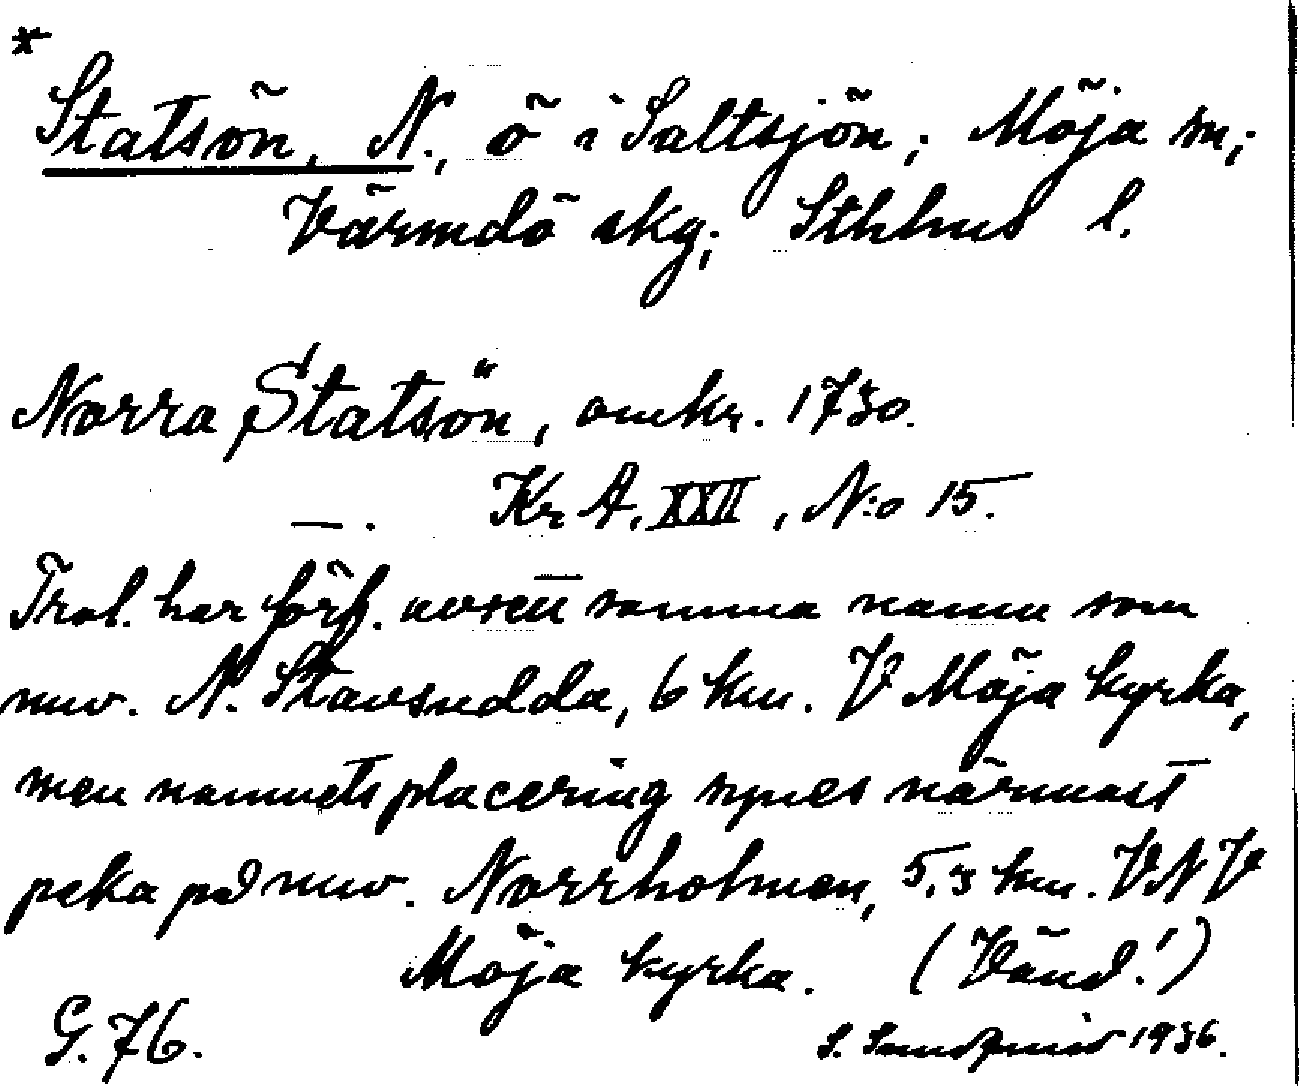 *
Statsön, N., ö i Saltsjön; Möja sn;
Värmdö skg; Sthlms l.
Norra Statsön, omkr. 1730.
—. Kr A, XXII, N:o 15.
Trol. har förf. avsett samma namn som
nuv. N. Stavsudda, 6 km. V Möja kyrka,
men namnets placering synes närmast
peka på nuv. Norrholmen, 5,3 km. VNV
Möja kyrka. (Vänd!)
G. 76. S. Sundqvist 1936.